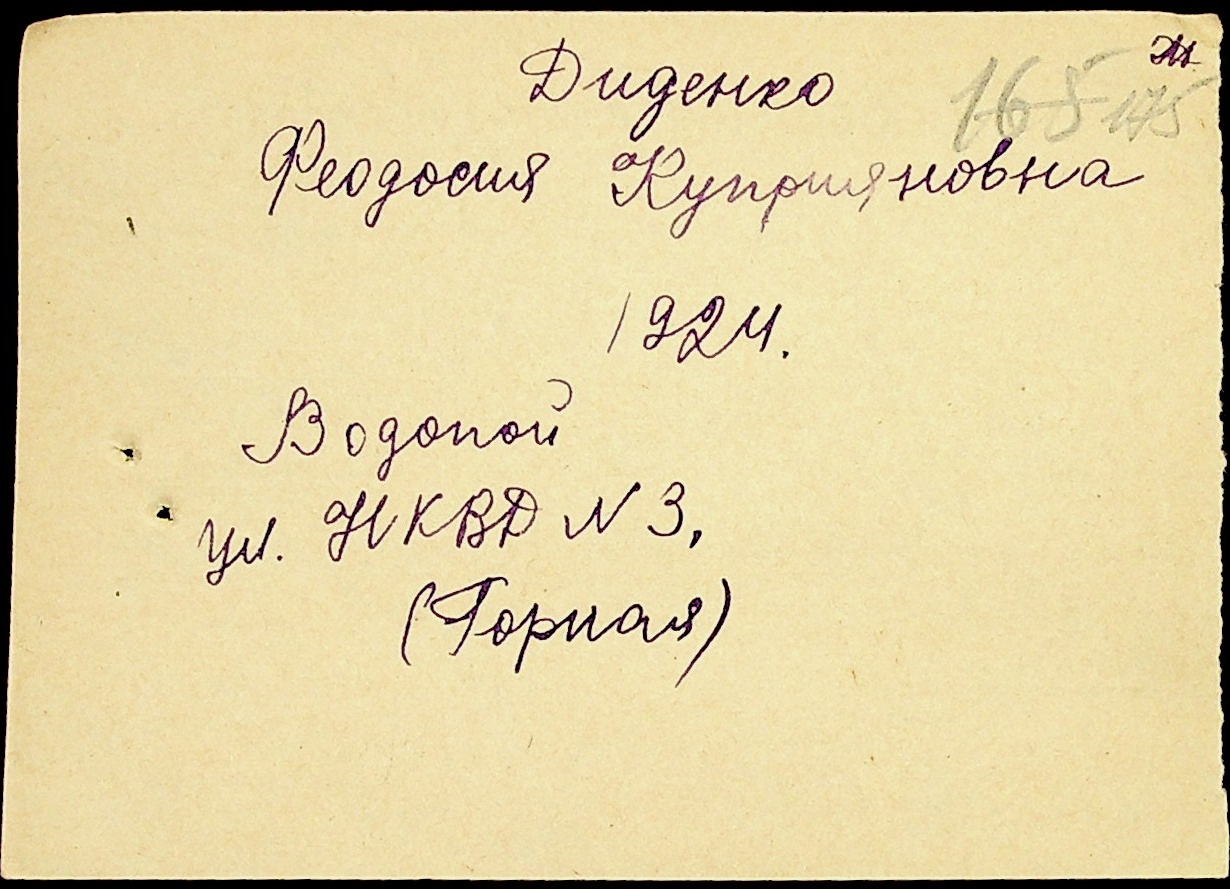 Диденко
165 175
Феодосия Куприяновна
1924.
Водопой
ул. НКВД N 3,
(Горная)